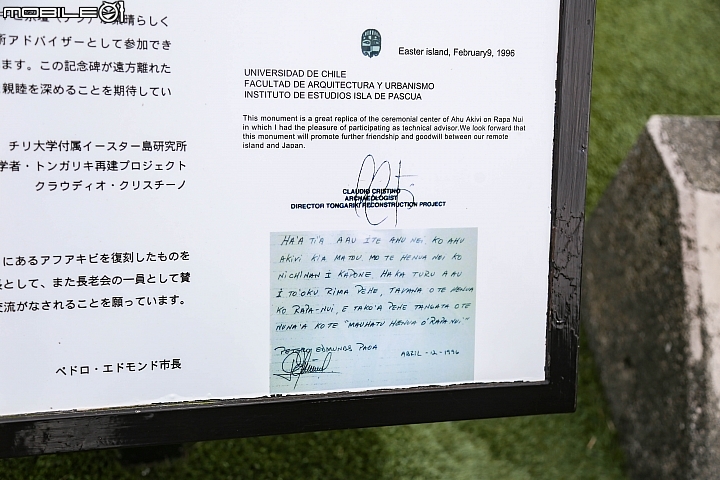 MOBILE01
晴らしく
術アドバイザーとして参加でき
ます。この記念碑が遠方離れた
親睦を深めることを期待してい
チリ大学付属イースター島研究所
学者・トンガリキ再建プロジェクト
クラウディオ・クリスチーノ
にあるアフアキビを復刻したものを
長として、また長老会の一員として賛
交流がなされることを願っています。
ペドロ・エドモンド市長
Easter island, February9, 1996
UNIVERSIDAD DE CHILE
FACULTAD DE ARQUITECTURA Y URBANISMO
INSTITUTO DE ESTUDIOS ISLA DE PASCUA
This monument is a great replica of the ceremonial center of Ahu Akivi on Rapa Nui
in which I had the pleasure of participating as technical advisor.We look forward that
this monument will promote further friendship and goodwill between our remote
island and Japan.
CLAUDIO CRISTINO
ARCHAEOLOGIST
DIRECTOR TONGARIKI RECONSTRUCTION PROJECT
HA'A TI'A A AU ITE AHU NEI, KO AHU
AKIVI KIA MATOU MO TE HENUA NEI KO
NICHINAN I KAPONE. HAKA TURU A AU
I TO'OKU RIMA PEHE, TAVANA O TE HENUA
KO RAPA-NUI, E TAKO'A PEHE TANGATA O TE
NUNA'A KO TE "MAUHATU HENUA O'RAPA NUI"
PETERO EDMUNDS PAOA
ABRIL-12-1996